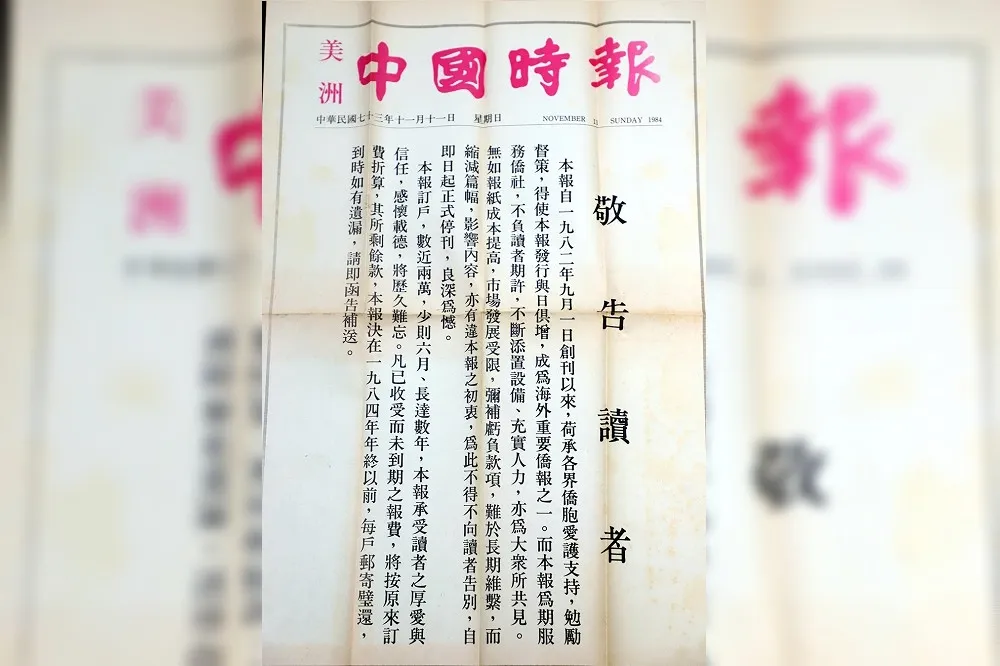 美洲
中國時報
中華民國七十三年十一月十一日 星期日 NOVEMBER 11 SUNDAY 1984
敬告讀者
本報自一九八二年九月一日創刊以來，荷承各界僑胞愛護支持，勉勵
督策，得使本報發行與日俱增，成爲海外重要僑報之一。而本報爲期服
務僑社，不負讀者期許，不斷添置設備、充實人力，亦爲大衆所共見。
無如報紙成本提高，市場發展受限，彌補虧負款項，難於長期維繫，而
縮減篇幅，影響內容，亦有違本報之初衷，爲此不得不向讀者告別，自
即日起正式停刊，良深爲憾。
本報訂戶，數近兩萬，少則六月、長達數年，本報承受讀者之厚愛與
信任，感懷載德，將歷久難忘。凡已收受而未到期之報費，將按原來訂
費折算，其所剩餘款，本報決在一九八四年年終以前，每戶郵寄璧還，
到時如有遺漏，請即函告補送。